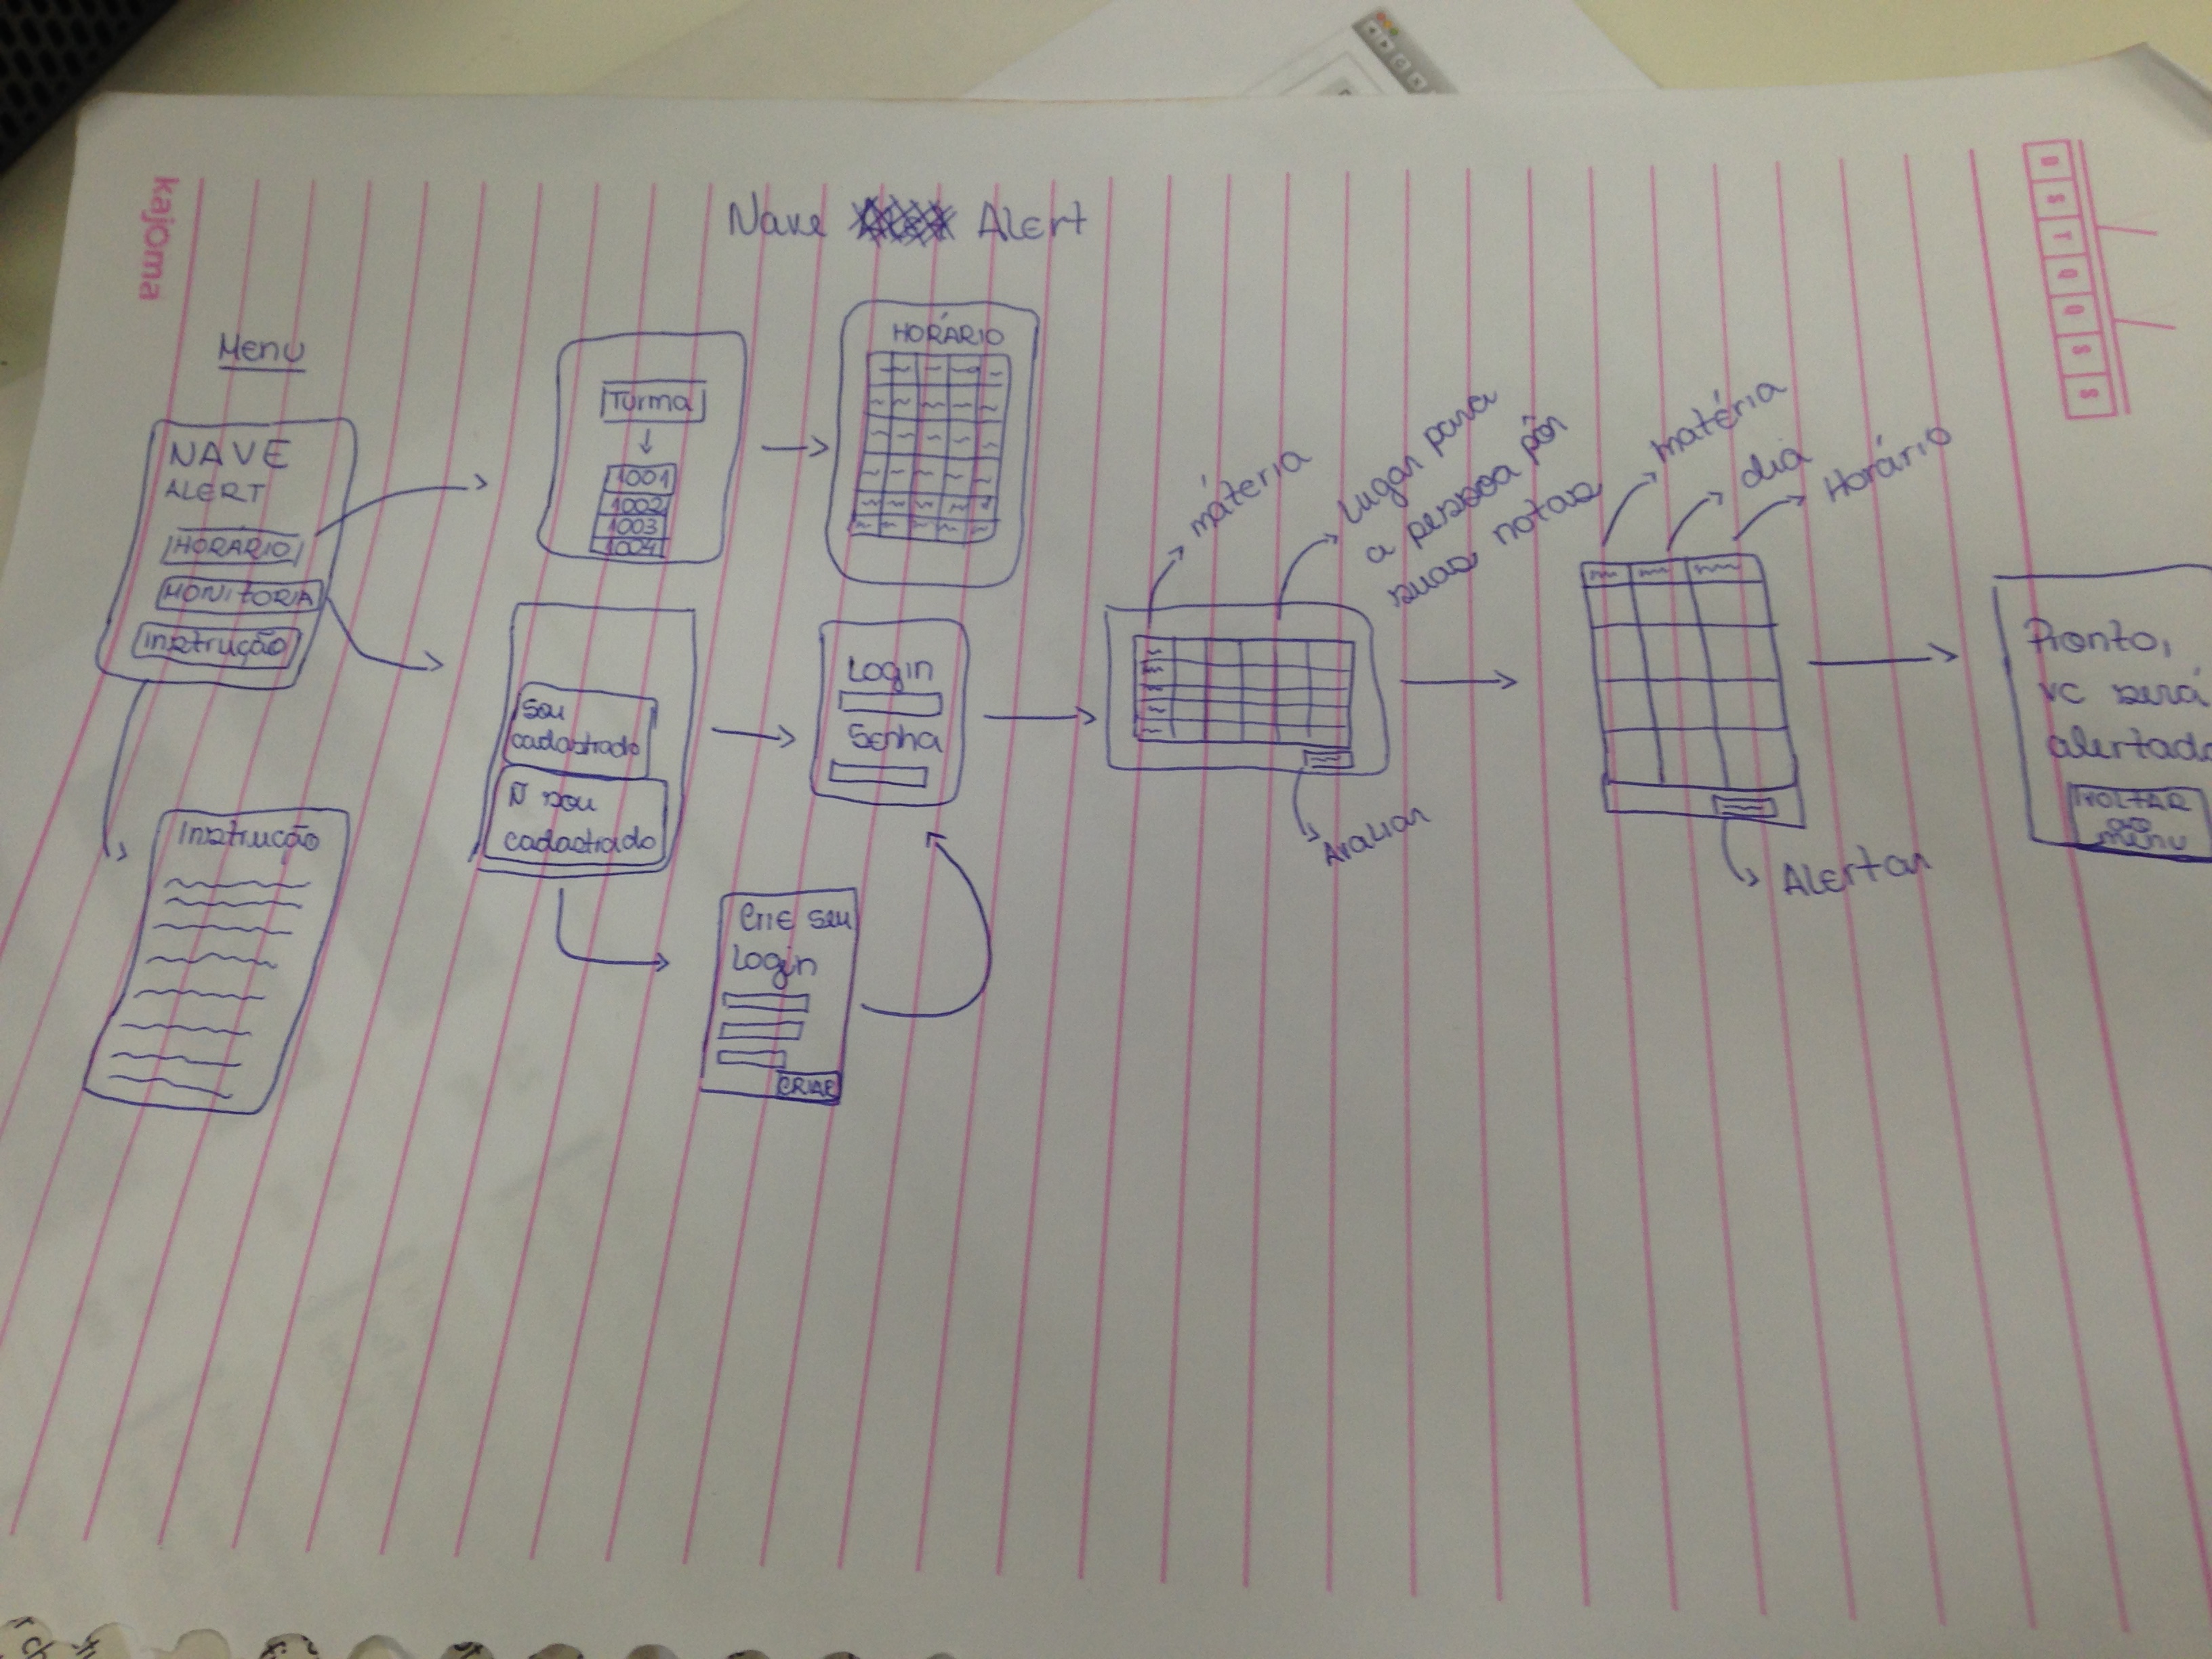 kajoma
D S T Q Q S S
Nave Alert
Menu
NAVE
ALERT
HORÁRIO
MONITORIA
Instrução
Instrução
Turma
1001
1002
1003
1004
HORÁRIO
Sou
cadastrado
Ñ sou
cadastrado
Login
Senha
Crie seu
Login
CRIAR
máteria
Lugar para
a pessoa pôr
suas notas
Avaliar
matéria
dia
Horário
Alertar
Pronto,
vc será
alertado
VOLTAR
ao
menu